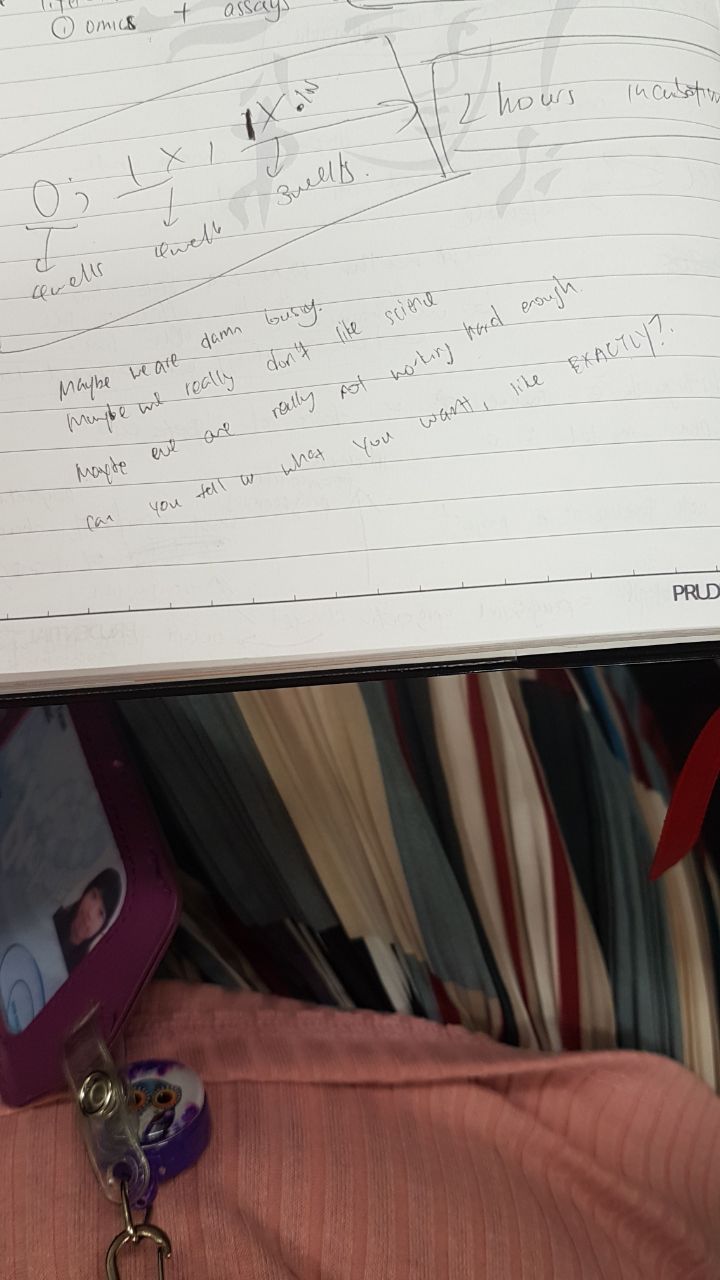 ① omics + assays
1X
0; 1X, 2 hours
4wells 4wells 3wells.
Maybe we are damn busy.
Maybe we really don't like science
Maybe we are really not working hard enough.
Can you tell us what you want, like EXACTLY?.
PRUD